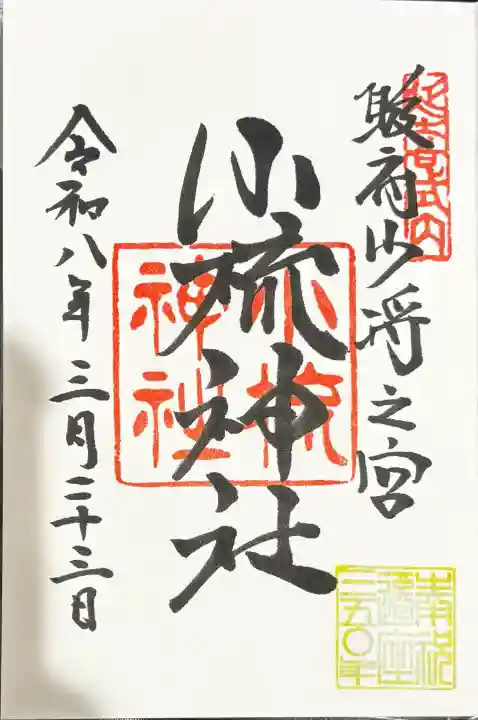 延喜式内
駿府少将之宮
小梳神社
小梳神社
令和八年三月二十三日
奉祝
遷座
三五〇年